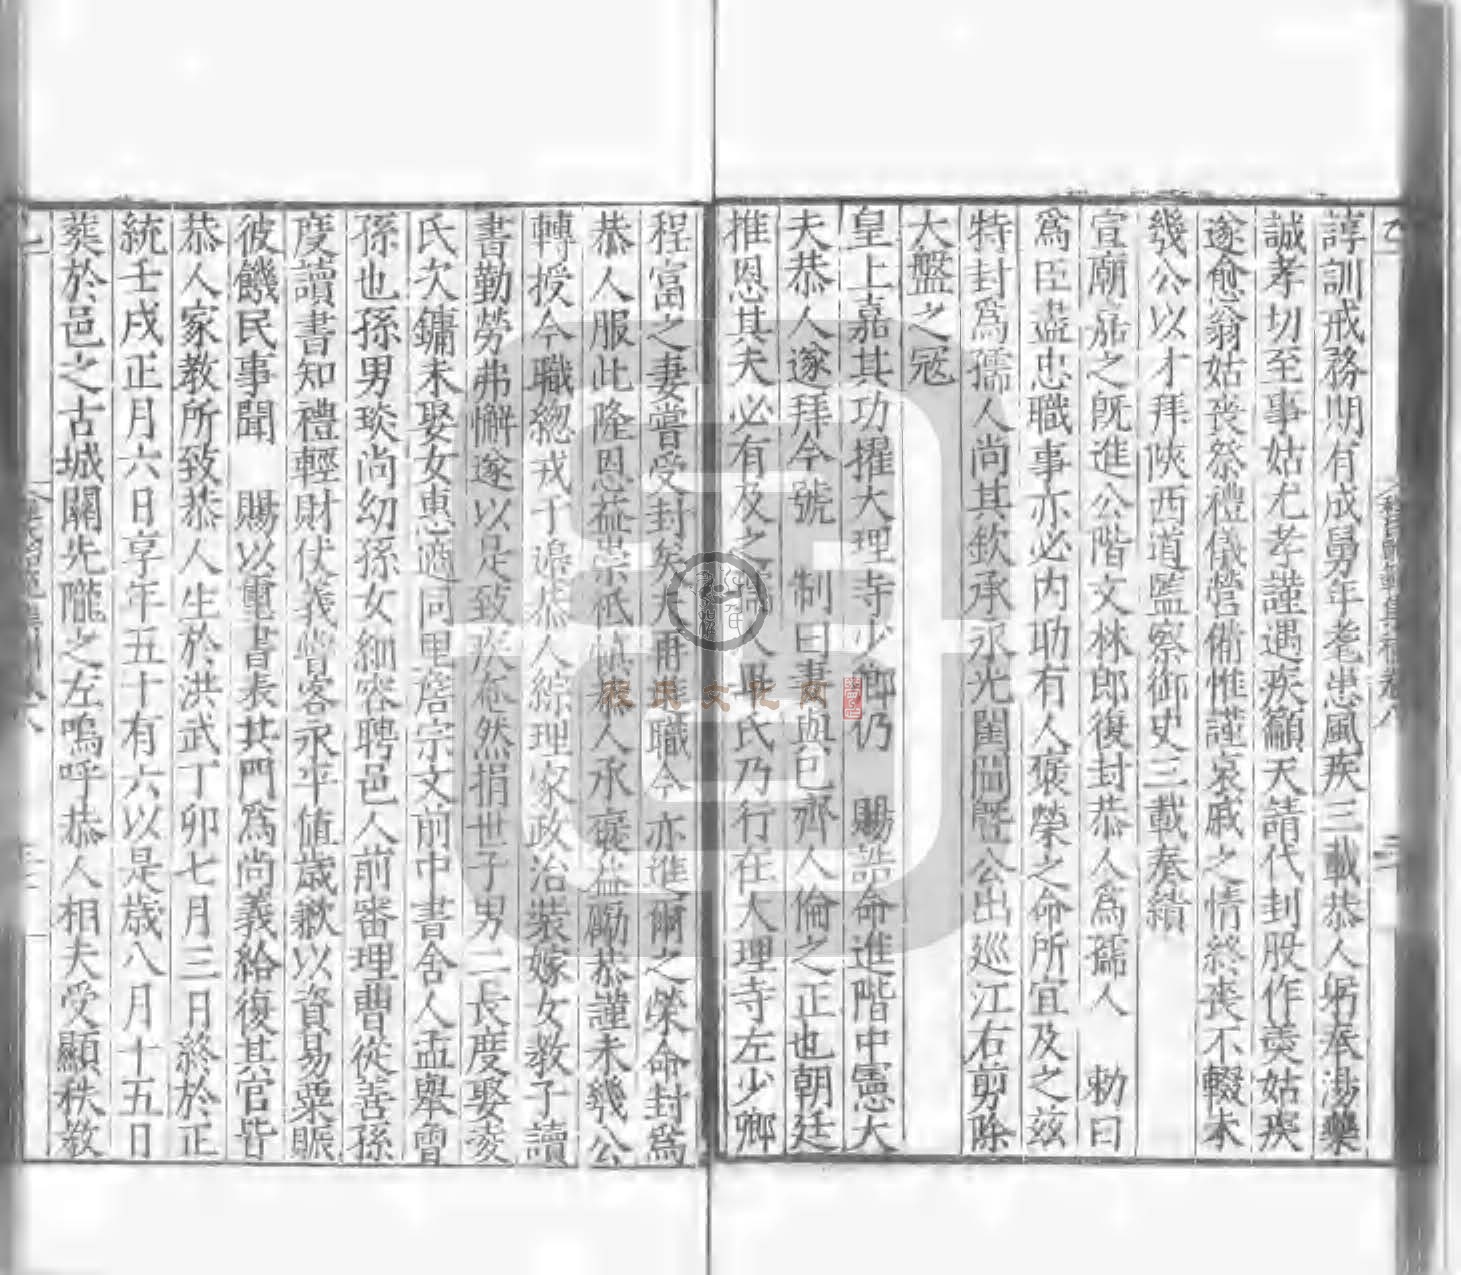 諄訓戒務期有成舅年老患風疾三載恭人躬奉湯藥
誠孝切至事姑尤孝謹遇疾籲天請代封股作羹姑疾
遂愈翁姑喪祭禮儀營備惟謹哀戚之情終喪不輟未
幾公以才拜陜西道監察御史三載奏績
宣廟嘉之既進公階文林郎復封恭人為孺人 勑曰
為臣盡忠職事亦必內助有人褒榮之命所宜及之茲
特封為孺人尚其欽承永光閨閫暨公出巡江右剪除
大盤之冦
皇上嘉其功擢大理寺少卿仍 賜誥命進階中憲大
夫恭人遂拜今號 制曰妻與已齊人倫之正也朝廷
推恩其夫必有及之 氏乃行在大理寺左少卿
程富之妻嘗受封矣夫爾進職今亦進爾之榮命封為
恭人服此隆恩益崇祇慎恭人承褒益勵恭謹未幾公
轉授今職總戎于邊恭人綜理家政治裝嫁女教子讀
書勤勞弗懈遂以足致疾奄然捐世子男二長度娶凌
氏次鏞未娶女惠適同里詹宗文前中書舍人孟舉曾
孫也孫男琰尚幼孫女細容聘邑人前審理曹從善孫
度讀書知禮輕財伏義嘗客永平值歲歉以資易粟賑
彼饑民事聞 賜以璽書表其門為尚義給復其官皆
恭人家教所致恭人生於洪武丁卯七月三日終於正
統壬戌正月六日享年五十有六以是歲八月十五日
葬於邑之古城關先隴之左嗚呼恭人相夫受顯秩教